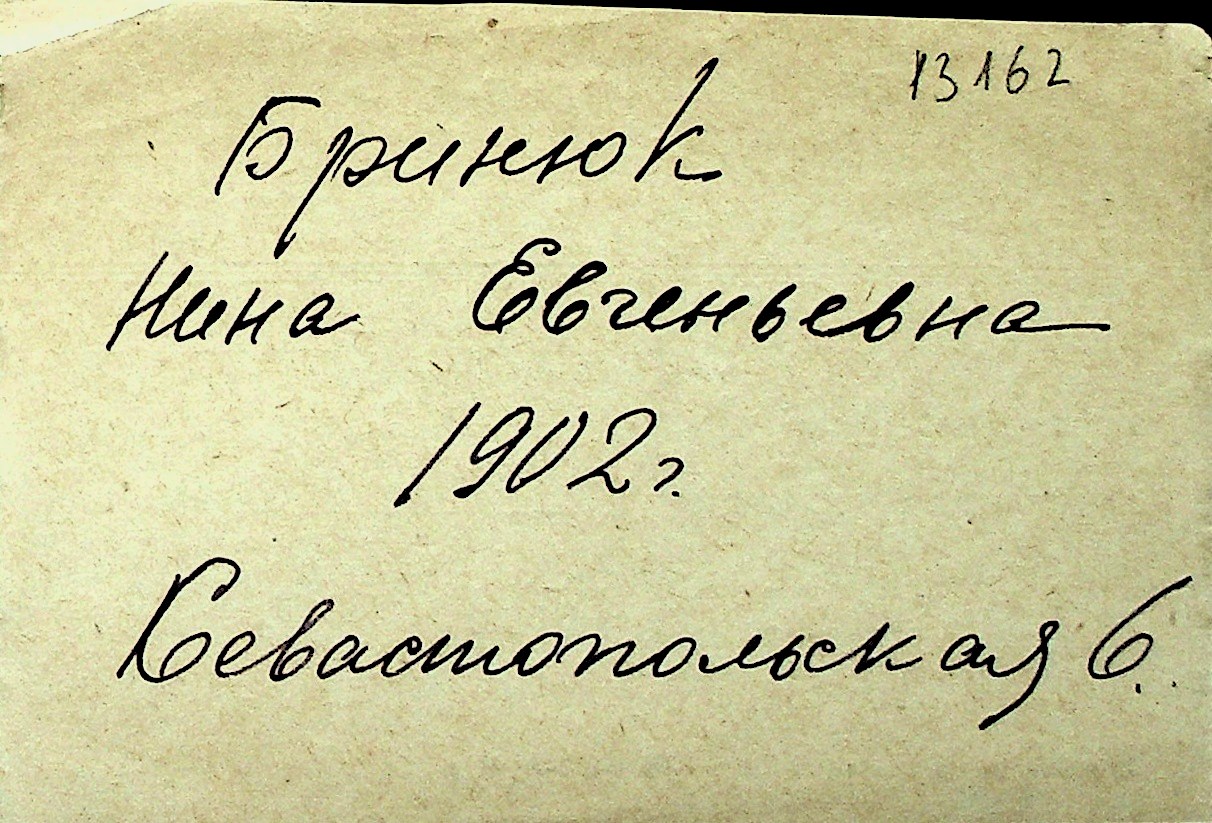 13162
Бринюк
Нина Евгеньевна
1902 г.
Севастопольская 6.